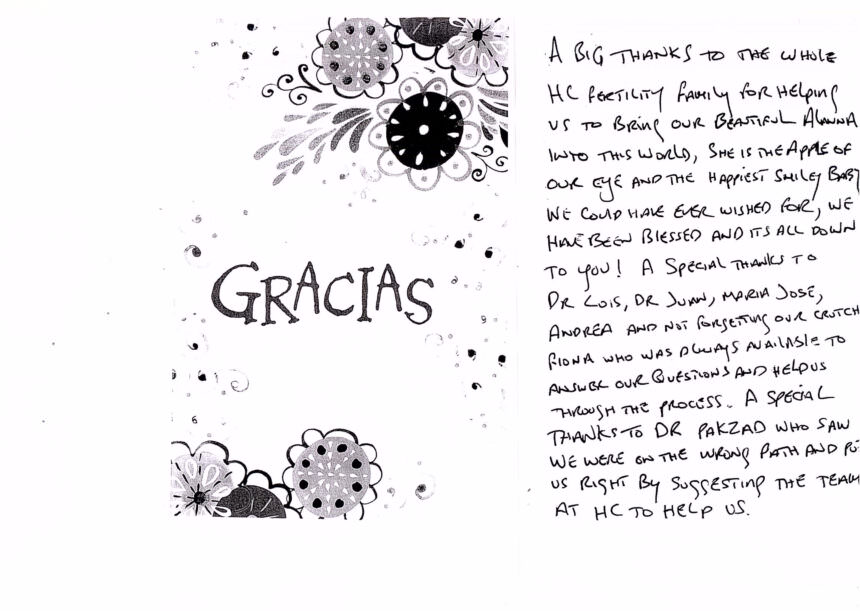 GRACIAS
A BIG THANKS TO THE WHOLE
HC FERTILITY FAMILY FOR HELPING
US TO BRING OUR BEAUTIFUL ALANNA
INTO THIS WORLD, SHE IS THE APPLE OF
OUR EYE AND THE HAPPIEST SMILEY BABY
WE COULD HAVE EVER WISHED FOR, WE
HAVE BEEN BLESSED AND ITS ALL DOWN
TO YOU! A SPECIAL THANKS TO
DR LOIS, DR JUAN, MARIA JOSE,
ANDREA AND NOT FORGETTING OUR CRUTCH
FIONA WHO WAS ALWAYS AVAILABLE TO
ANSWER OUR QUESTIONS AND HELP US
THROUGH THE PROCESS. A SPECIAL
THANKS TO DR PAKZAD WHO SAW
WE WERE ON THE WRONG PATH AND PU
US RIGHT BY SUGGESTING THE TEAM
AT HC TO HELP US.